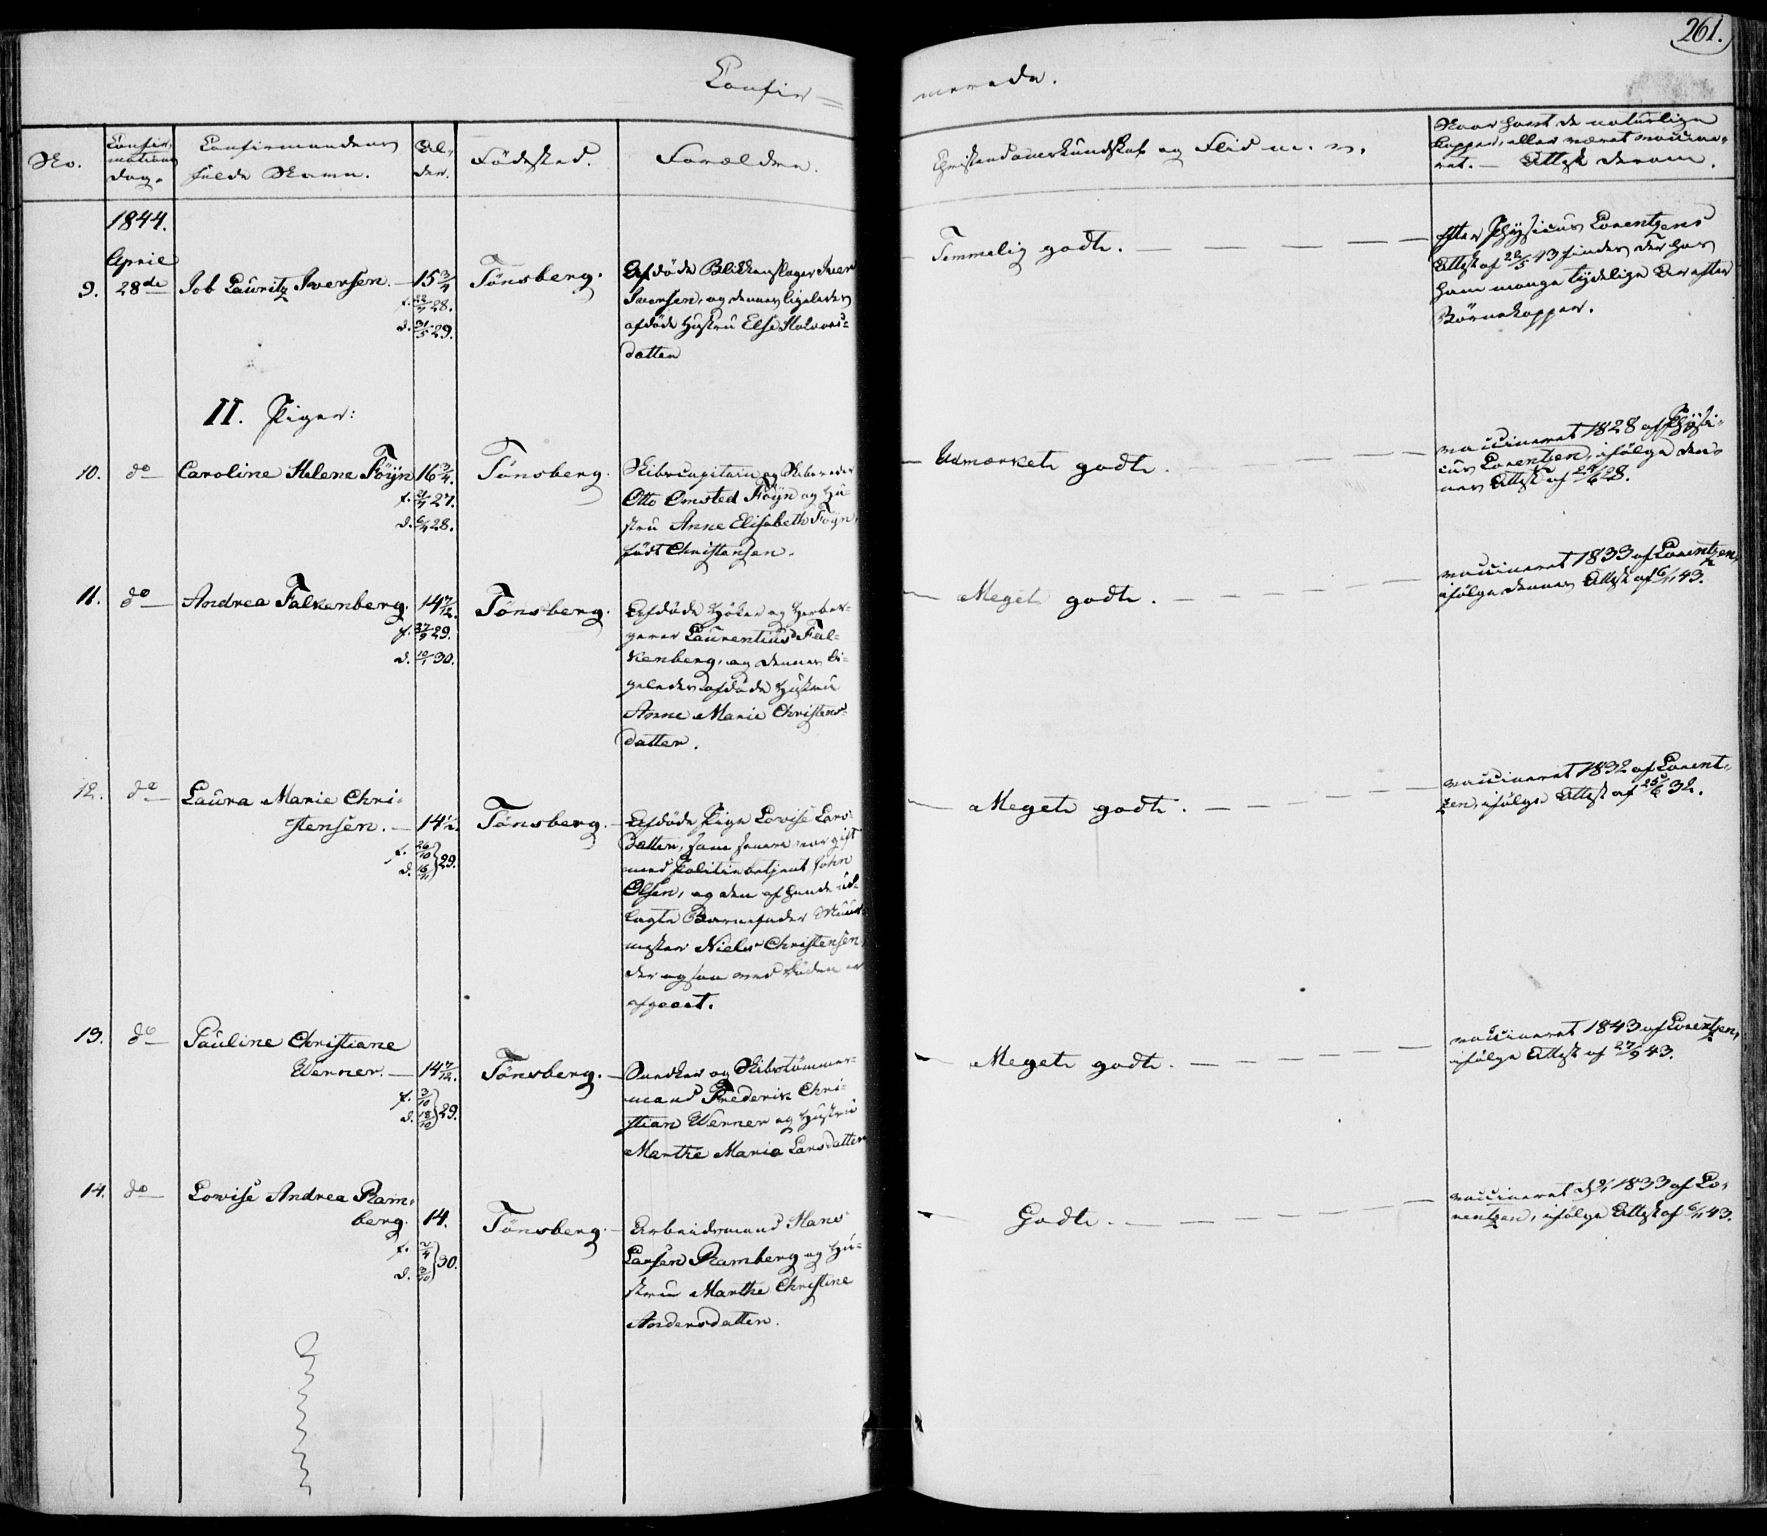 261.
Confir=
merede.
No.
Confir-
mations
Dag.
Confirmandens
fulde Navn.
Al-
der.
Födested.
Forældre.
Christendomskundskab og Flid m. v.
Naar havt de naturlige
Kopper, eller været vaccine-
ret. — Attest derom.
1844.
April
9. 28de Job Lauritz Iversen. — 15 3/4
f. 28.
d. 31/5 29.
Tönsberg.
Afdöde Blikkenslager Iver
Iversen, og dennes ligeledes
afdöde Hustru Else Halvors-
datter
Temmelig godt.
Efter Physicus Lorentzens
Attest af 22/5 43 findes der hos
ham mange tydelige Ar efter
Börnekopper.
II. Piger:
10. do Caroline Helene Föyn 16 3/4.
f. 27.
d. 28.
Tönsberg.
Skibscapitain og Skibsreder
Otto Omsted Föyn og Hu-
stru Anne Elisabeth Föyn,
född Christensen.
Udmærket godt.
vaccineret 1828 af Physi-
cus Lorentzen, ifölge den-
nes Attest af 28.
11. do Andrea Falkenberg. 14 7/12.
f. 29.
d. 30.
Tönsberg.
Afdöde Höker og Herber-
gerer Laurentius Fal-
kenberg, og dennes li-
geledes afdöde Hustru
Anne Marie Christens-
datter.
Meget godt.
vaccineret 1833 af Lorentzen,
ifölge dennes Attest af 43.
12. do Laura Marie Chri-
stensen. — 14 1/2.
f. 26/10
d. 29.
Tönsberg.
Afdöde Pige Lovise Lars-
datter, som senere var gift
med Politiebetjent John
Olsen, og den af hende ud-
lagte Barnefader Muur-
mester Niels Christensen,
der ogsaa ved Döden er
afgaaet.
Meget godt.
vaccineret 1832 af Lorent-
zen, ifölge Attest af 25/6 32.
13. do Pauline Christiane
Werner. — 14 7/12.
f. 3/10
d. 18/10 29.
Tönsberg.
Snedker og Skibstömmer-
mand Frederik Chri-
stian Werner og Hustru
Marthe Maria Larsdatter
Meget godt.
vaccineret 1843 af Lorentzen,
ifölge Attest af 27/9 43.
14. do Lovise Andrea Ram-
berg. 14.
f. 2/4
d. 3/10 30.
Tönsberg.
Arbeidsmand Hans
Larsen Ramberg og Hu-
stru Marthe Christine
Andersdatter.
Godt.
vaccineret 1833 af Lo-
rentzen, ifölge Attest af 43.